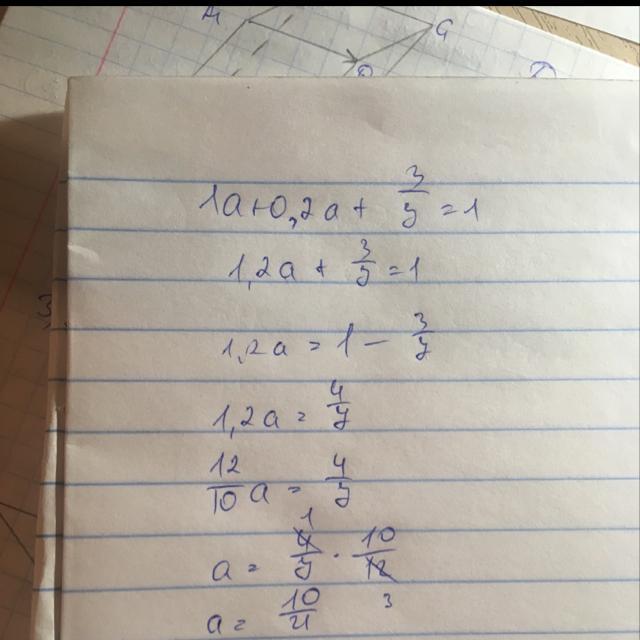 1a+0,2a+ 3/7 =1
1,2a + 3/7 =1
1,2a = 1 − 3/7
1,2a = 4/7
12/10 a = 4/7
1
a = 4/7 · 10/12
3
a = 10/21